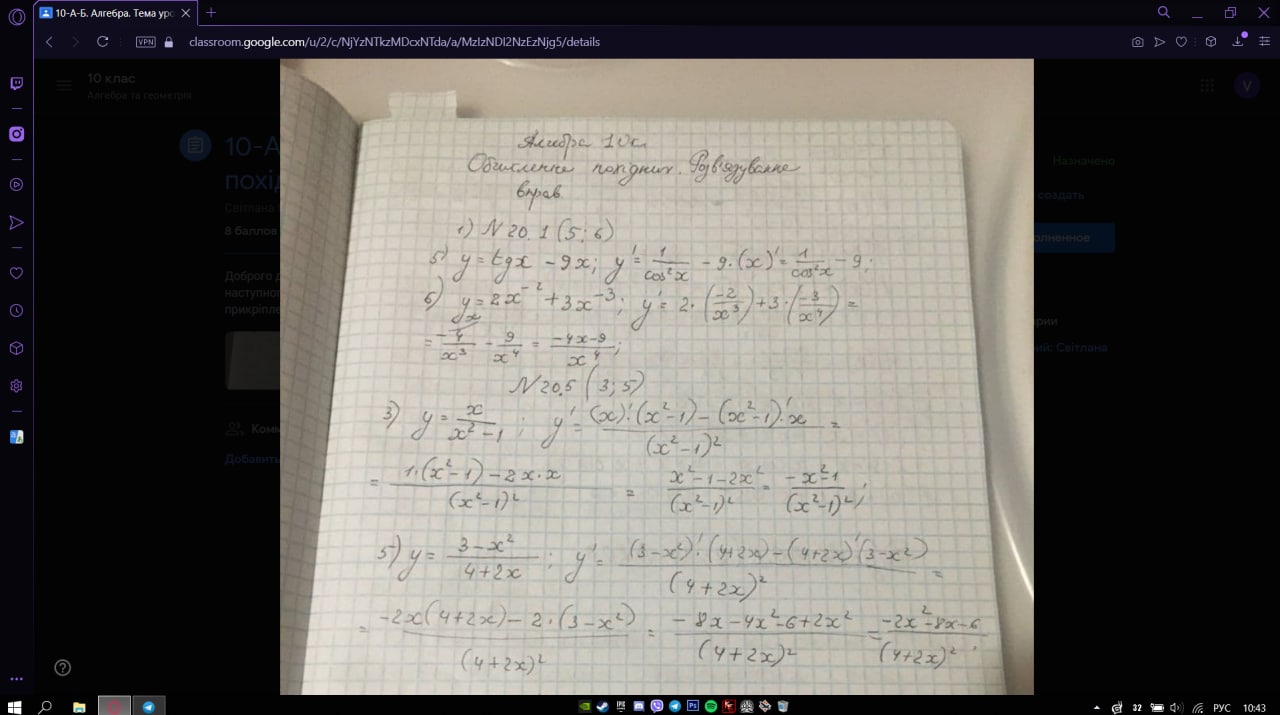 10-А-Б. Алгебра. Тема уро
VPN
classroom.google.com/u/2/c/NjYzNTkzMDcxNTda/a/MzIzNDI2NzEzNjg5/details
10 клас
Алгебра та геометрія
V
10-А
похід
Світлана
8 баллов
Назначено
создать
Доброго д
наступног
прикріпле
Комм
Добавить
Світлана
Алгебра 10кл
Обчислення похідних. Розв'язування
вправ.
1) N 20.1 (5; 6)
5) y = tgx - 9x; y' = 1/cos²x - 9·(x)' = 1/cos²x - 9;
6) y = 2x⁻² + 3x⁻³; y' = 2·(-2/x³) + 3·(-3/x⁴) =
= -4/x³ - 9/x⁴ = (-4x-9)/x⁴;
N 20.5 (3; 5)
3) y = x/(x²-1); y' = ((x)'·(x²-1) - (x²-1)'·x)/(x²-1)² =
= (1·(x²-1) - 2x·x)/(x²-1)² = (x²-1-2x²)/(x²-1)² = (-x²-1)/(x²-1)²;
5) y = (3-x²)/(4+2x); y' = ((3-x²)'·(4+2x) - (4+2x)'(3-x²))/(4+2x)² =
= (-2x(4+2x) - 2·(3-x²))/(4+2x)² = (-8x-4x²-6+2x²)/(4+2x)² = (-2x²-8x-6)/(4+2x)²;
32
РУС
10:43